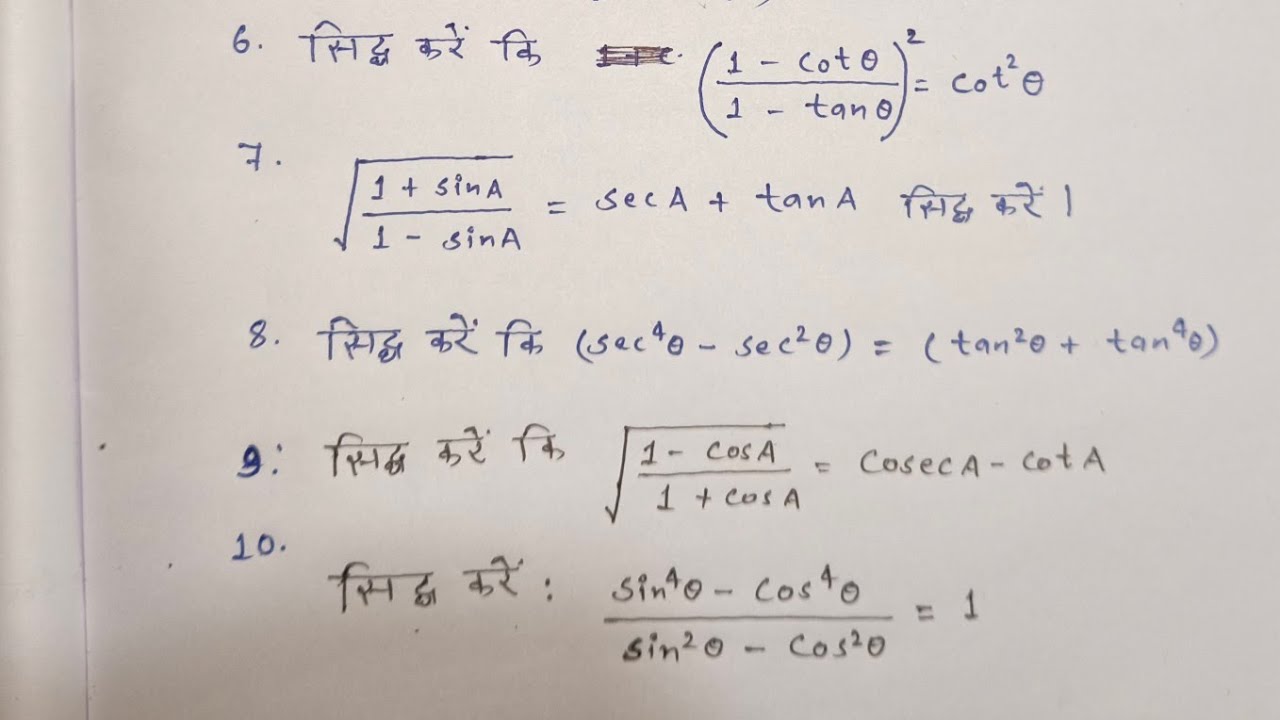 6. सिद्ध करें कि ((1 - cotθ)/(1 - tanθ))² = cot²θ
7. √((1 + sinA)/(1 - sinA)) = secA + tanA सिद्ध करें।
8. सिद्ध करें कि (sec⁴θ - sec²θ) = (tan²θ + tan⁴θ)
9: सिद्ध करें कि √((1 - cosA)/(1 + cosA)) = cosecA - cotA
10.
सिद्ध करें: (sin⁴θ - cos⁴θ)/(sin²θ - cos²θ) = 1